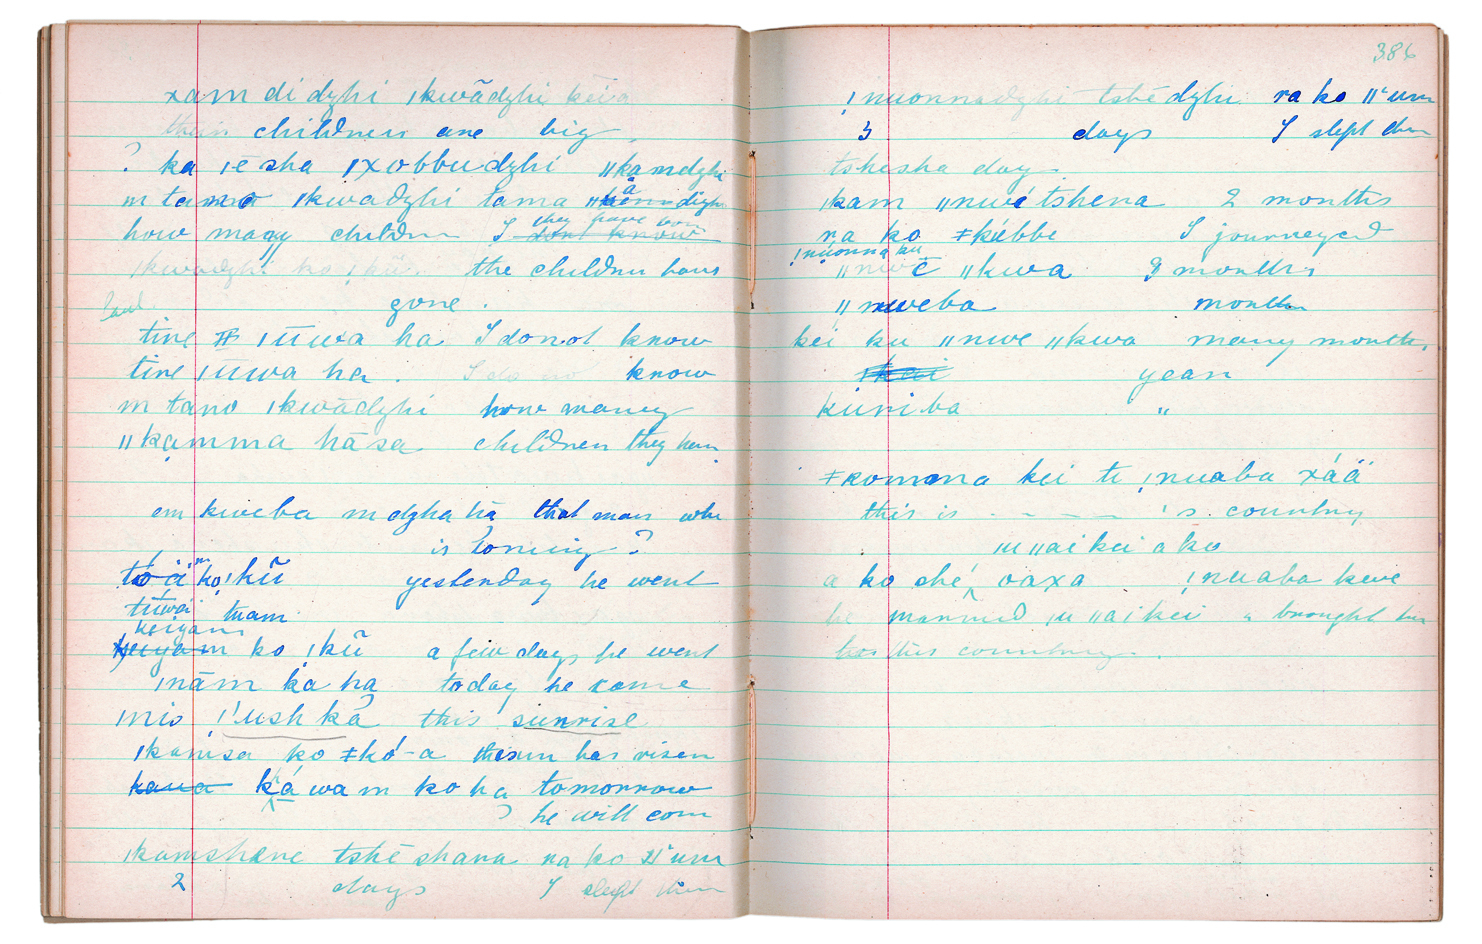 xam di dzhi ıkwãdzhi kēiä
their children are big
? ka ıē sha ıxobbudzhi ıı kamdzhi
m tamo ıkwadzhi tama
how many children I they have don't know
ıkwadzhi ko ıkũ the children have
gone.
tire ıūwa ha I do not know
tire ıūwa ha. I do no know
m tano ıkwãdzhi how many
ıı kamma hāsa children they have
em kweba m dzha hã that man who
is coming ?
tóä m ko ıkũ yesterday he went
tūwái tuam
keiyam
keiyam ko ıkũ a few days he went
ınãm ka ha today he come
mio ı'ush kā this sunrise
ıkamsa ko ǂkó-a the sun has risen
kaua káwam ko ha tomorrow
? he will com
ıkamshene tshē shana ra ko ıı'um
2 days I slept then
386
!nuonnadzhi tshēdzhi ra ko ıı'um
3 days I slept then
tshesha day.
ıkam ıınwé tshena 2 months
ra ko ǂkúbbe I journeyed
!nuonna ku
ıınwē ııkwa 3 months
ıınweba month
kei ku ıınwe ııkwa many months,
ıkai year
kuriba "
ǂkomma kei ti !nuaba xáä
this is – – – – 's country
ıu ııai kei a ko
a ko shé oaxa !nuaba keve
he married ıu ııaikei & brought her
to this country.